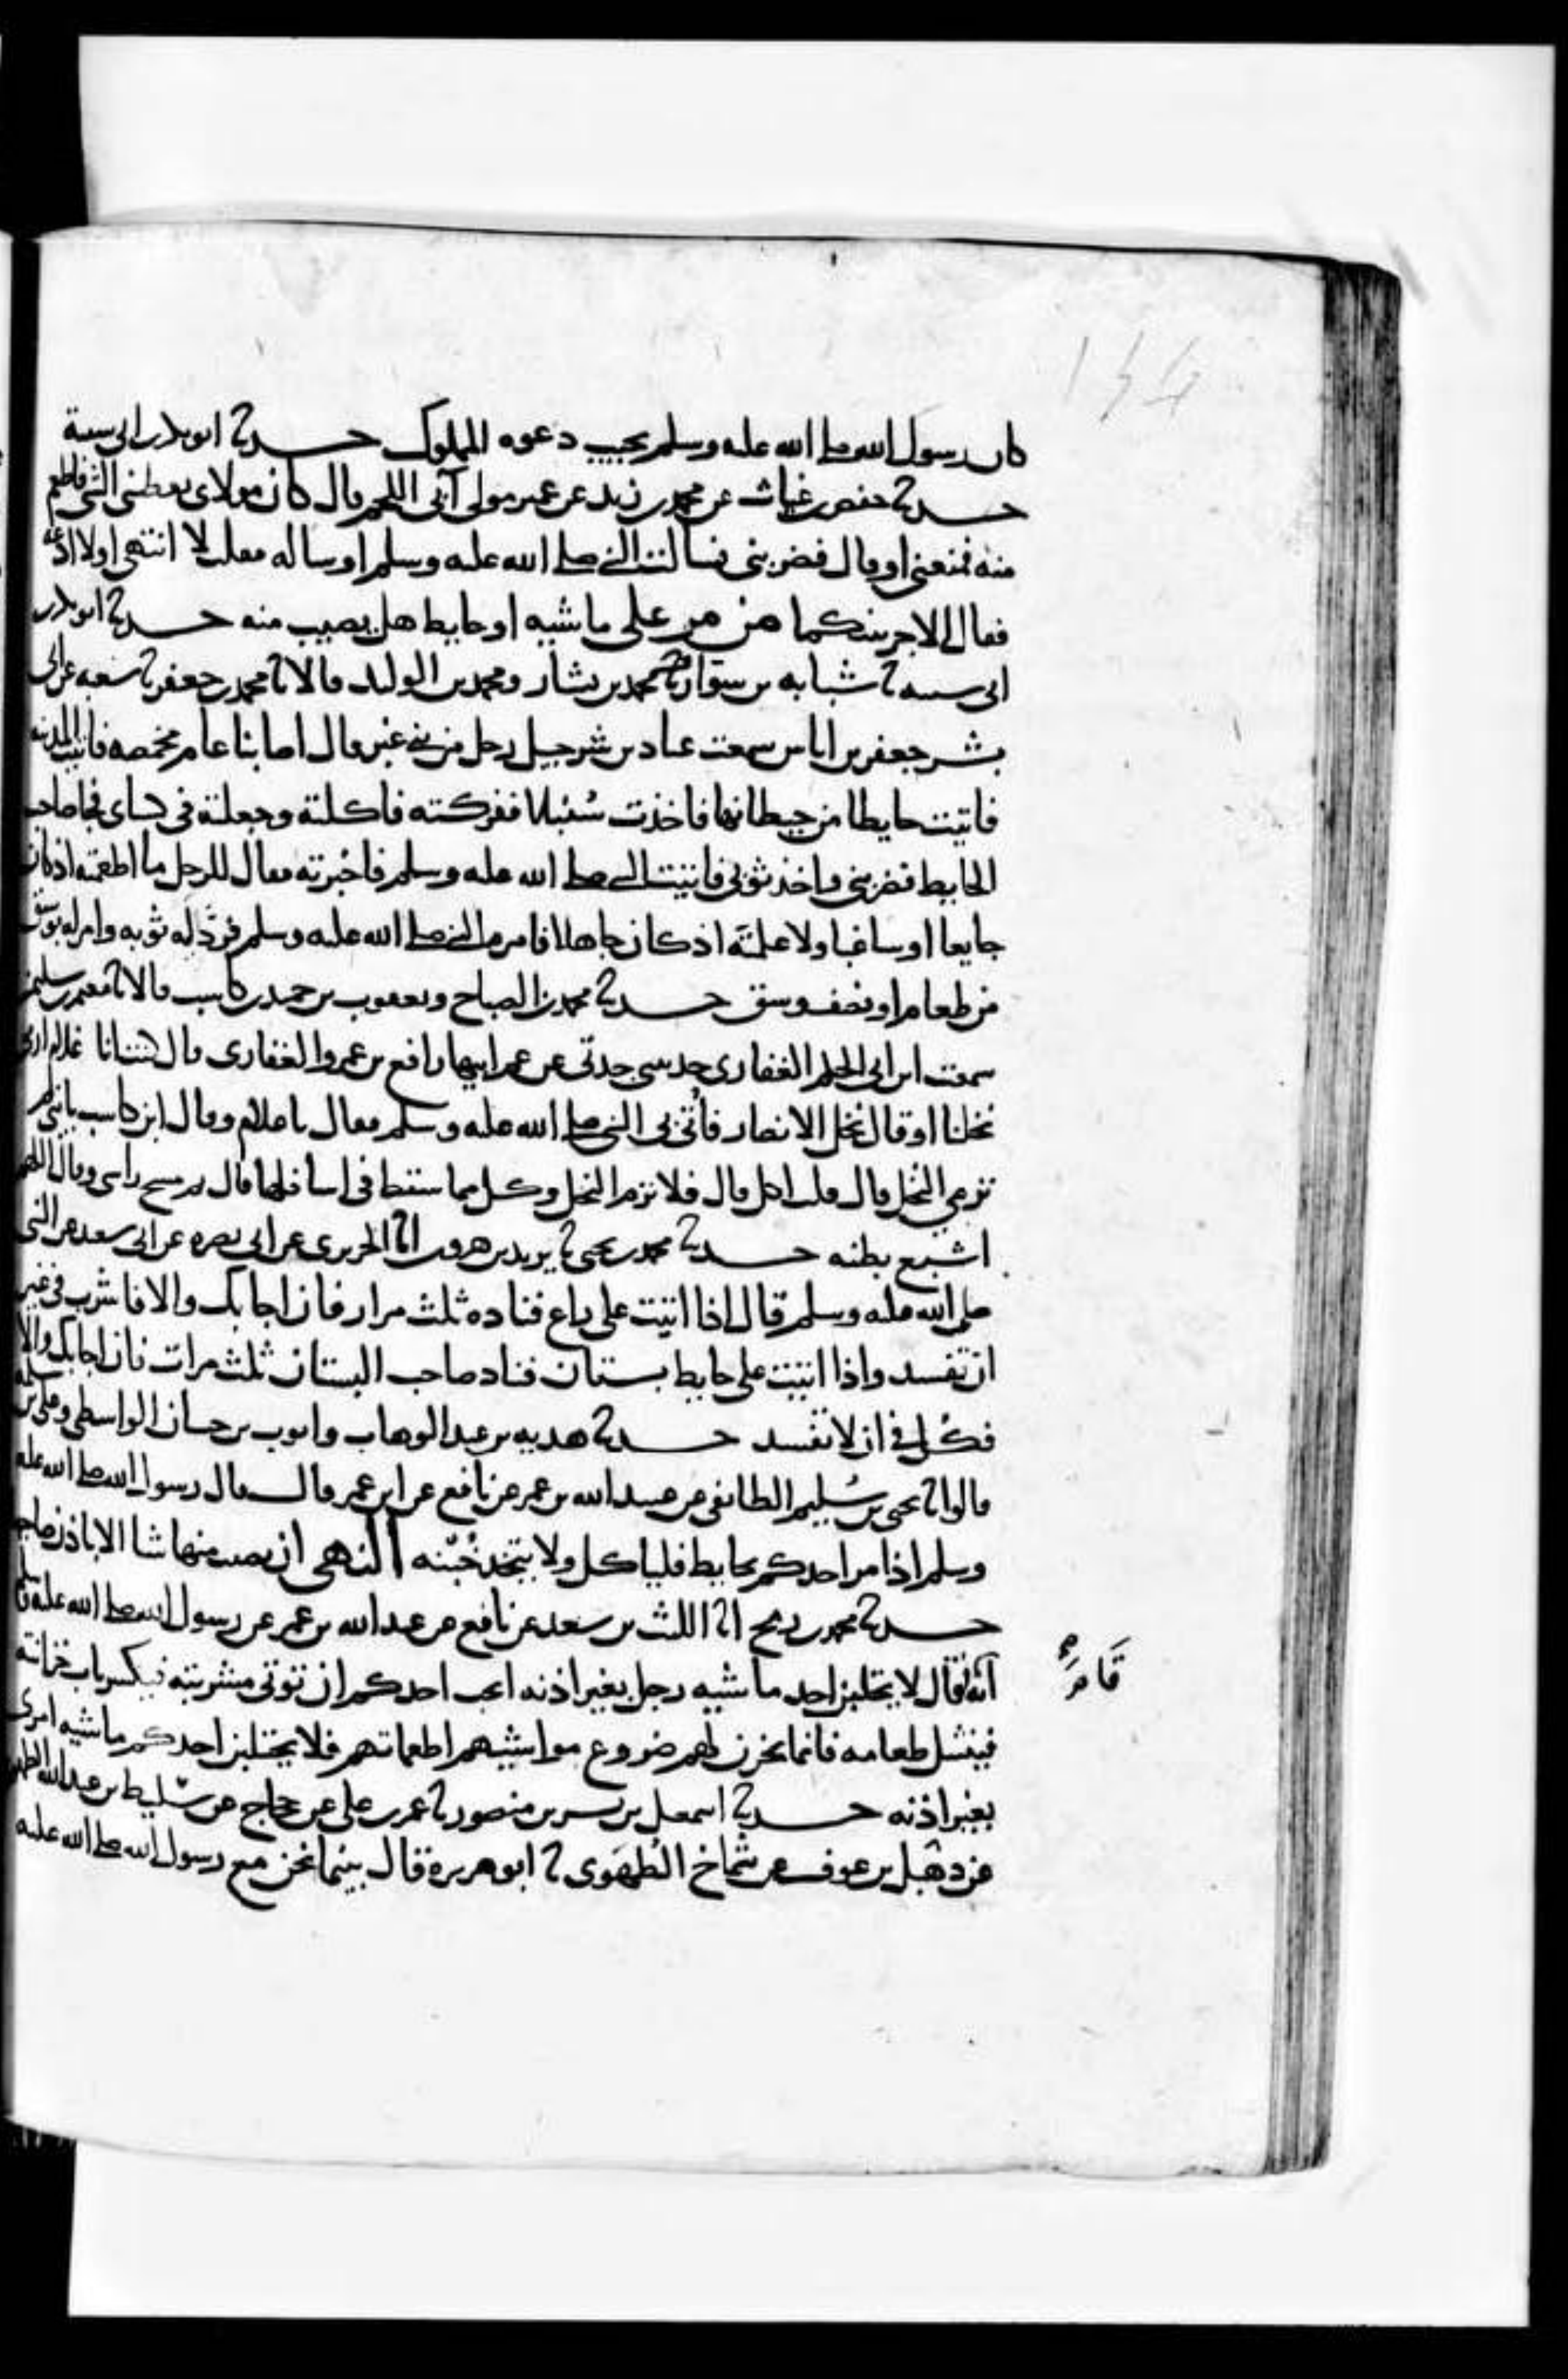 134
كان رسول الله صلى الله عليه وسلم يجيب دعوه المملوك حدثنا ابو بكر بن ابي شيبة
حدثنا حفص بن غياث عن محمد بن زيد عن عمير مولى آبي اللحم قال كان مولاى يعطيني الشي فاطعم
منه فمنعني او قال فضربني فسالت النبي صلى الله عليه وسلم او ساله فقلت لا انتهي او لا ادعه
فقال الاجر بينكما من مر على ماشيه او حايط هل يصيب منه حدثنا ابو بكر بن
ابي شيبه نا شبابه بن سوار ح نا محمد بن بشار ومحمد بن الوليد قالا نا محمد بن جعفر نا شعبه عن ابي
بشر جعفر بن اياس سمعت عباد بن شرحبيل رجل من بني غبر قال اصابنا عام مخمصه فاتيت المدينه
فاتيت حايطا من حيطانها فاخذت سُنبلا ففركته فاكلته وجعلته في كساى فجا صاحب
الحايط فضربني واخذ ثوبي فاتيت النبي صلى الله عليه وسلم فاخبرته فقال للرجل ما اطعمته اذ كان
جايعا او ساغبا ولا علمته اذ كان جاهلا فامره النبي صلى الله عليه وسلم فردّ اليه ثوبه وامر له بوسق
من طعام او نصف وسق حدثنا محمد بن الصباح ويعقوب بن حميد بن كاسب قالا نا معتمر بن سليمن
سمعت ابن ابي الحكم الغفارى حدثني جدتي عن عم ابيها رافع بن عمرو الغفارى قال كنت انا غلام ارمي
نخلنا او قال نخل الانصار فأُتي بي النبي صلى الله عليه وسلم فقال يا غلام وقال ابن كاسب يا بني لم
ترمي النخل قال قلت اكل قال فلا ترم النخل وكل مما سقط في اسافلها قال ثم مسح راسي وقال اللهم
اشبع بطنه حدثنا محمد بن يحيى نا يزيد بن هرون انا الجريرى عن ابي نضره عن ابي سعيد عن النبي
صلى الله عليه وسلم قال اذا اتيت على راع فناده ثلث مرار فان اجابك والا فاشرب في غير
ان تفسد واذا اتيت على حايط بستان فناد صاحب البستان ثلث مرات فان اجابك والا
فكُل في ان لا تفسد حدثنا هديه بن عبد الوهاب وايوب بن حسان الواسطي وعلي بن سلمه
قالوا نا يحيى بن سُليم الطائفي عن عبيد الله بن عمر عن نافع عن ابن عمر قال قال رسول الله صلى الله عليه
وسلم اذا مر احدكم بحايط فلياكل ولا يتخذ خُبنه النهي ان يصيب منها شيا الا باذن صاحبها
حدثنا محمد بن رمح انا الليث بن سعد عن نافع عن عبد الله بن عمر عن رسول الله صلى الله عليه وسلم
انه قال لا يحتلبن احد ماشيه رجل بغير اذنه ايحب احدكم ان توتى مشربته فيكسر باب خزانته
قام
فينتثل طعامه فانما يخزن لهم ضروع مواشيهم اطعماتهم فلا يحتلبن احدكم ماشيه امرى
بغير اذنه حدثنا اسمعيل بن بشر بن منصور نا عمر بن علي عن حجاج عن سليط بن عبد الله الطهوى
عن ذهيل بن عوف بن شماخ الطُهَوى نا ابو هريرة قال بينما نحن مع رسول الله صلى الله عليه